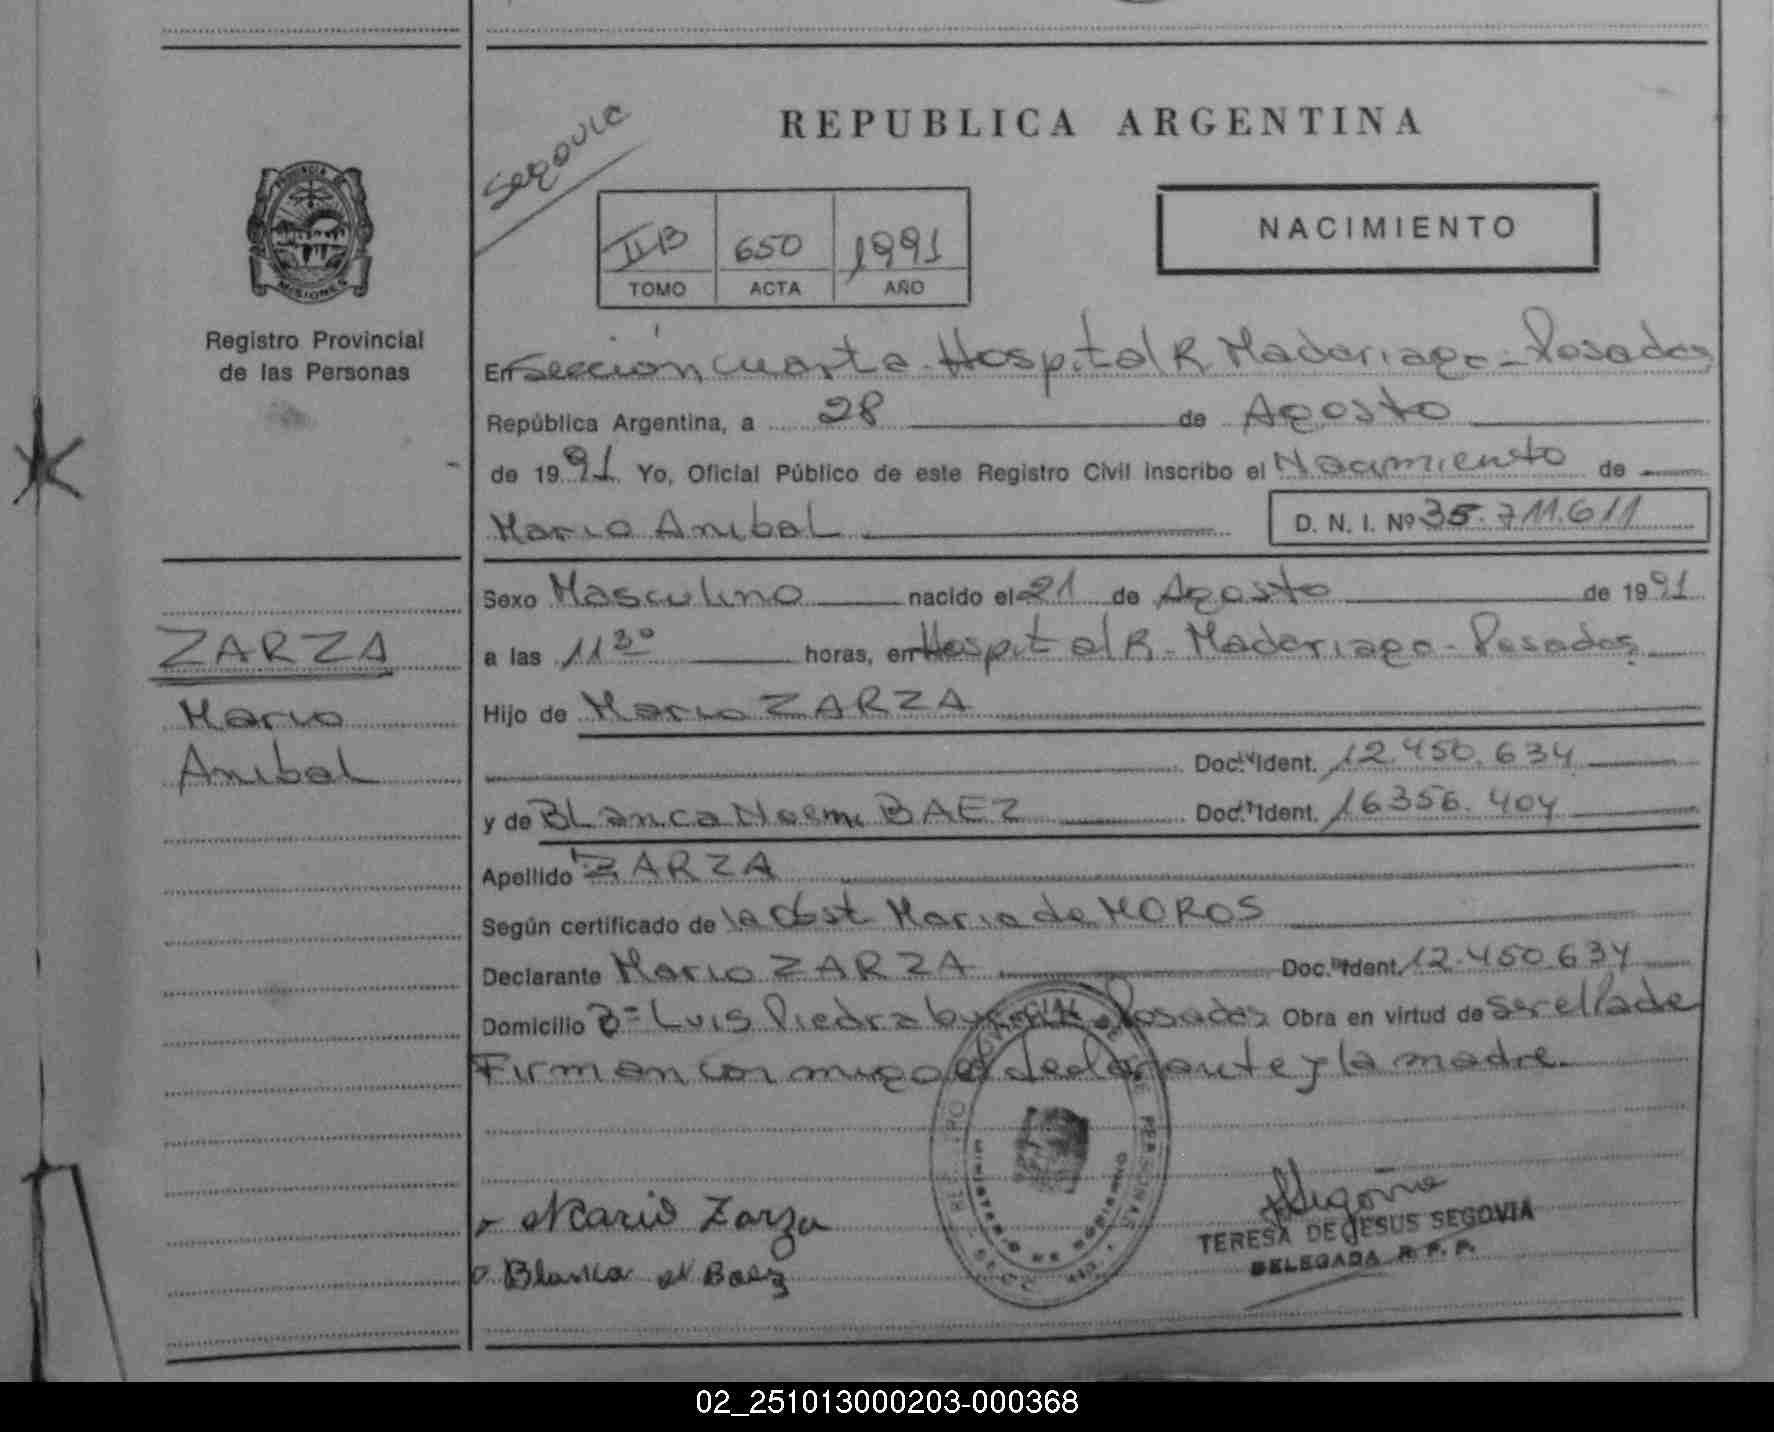 REPUBLICA ARGENTINA
Segovia
NACIMIENTO
II B 650 1991
TOMO ACTA AÑO
PROVINCIA DE
MISIONES
Registro Provincial
de las Personas
En Sección Cuarta - Hospital R Madariaga - Posadas
República Argentina, a 28 de Agosto
de 19 91 Yo, Oficial Público de este Registro Civil inscribo el Nacimiento de
Mario Anibal D. N. I. Nº 35.711.611
Sexo Masculino nacido el 21 de Agosto de 19 91
a las 11 30 horas, en Hospital R. Madariaga - Posadas
Hijo de Mario ZARZA
Doc. Ident. 12.450.634
y de Blanca Noemi BAEZ Doc. Ident. 16356.404
Apellido ZARZA
Según certificado de la Obst Maria de MOROS
Declarante Mario ZARZA Doc. Ident. 12.450.634
Domicilio Bº Luis Piedrabuena Posadas Obra en virtud de ser el Padre
Firman conmigo el declarante y la madre.
ZARZA
Mario
Anibal
Mario Zarza
Blanca N Baez
MINISTERIO DE GOBIERNO
Segovia
TERESA DE JESUS SEGOVIA
DELEGADA R. P. P.
02_251013000203-000368